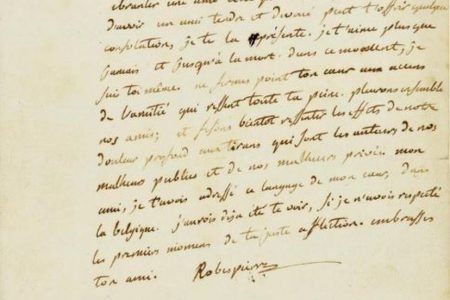 ébranler une ame
d'avoir un ami tendre et devoué peut t'offrir quelque
consolation, je te la présente. je t'aime plus que
jamais et jusqu'à la mort. dans ce moment, je
suis toi même. ne fermes point ton cœur aux accens
de l'amitié qui ressent toute ta peine. pleurons ensemble
nos amis; et fesons bientot ressentir les effets de notre
douleur profonde aux tirans qui sont les auteurs de nos
malheurs publics et de nos malheurs privés. mon
ami, je t'avois adressé ce langage de mon cœur, dans
la belgique. j'aurois deja été te voir, si je n'avois respecté
les premiers momens de ta juste affliction. embrasses
ton ami. Robespierre